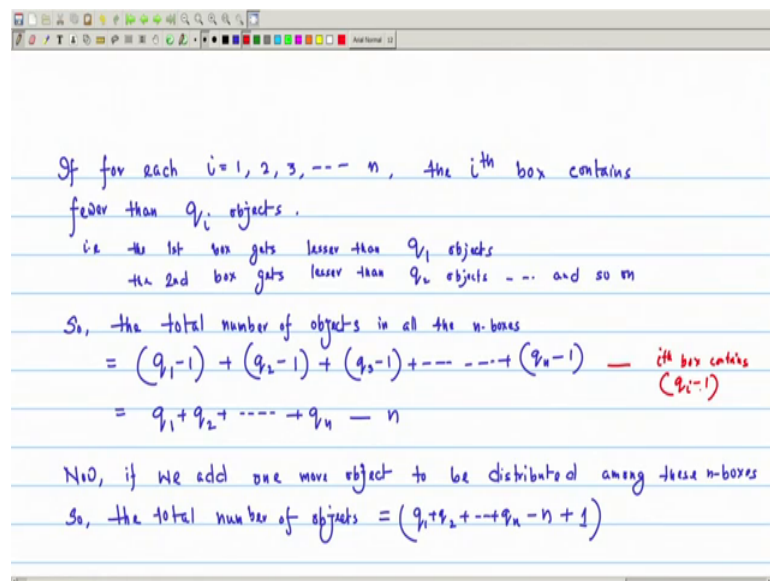 Arial Normal 12
If for each i = 1, 2, 3, ---- n, the i^th box contains
fewer than q_i objects.
i.e the 1st box gets lesser than q_1 objects
the 2nd box gets lesser than q_2 objects ---- and so on
So, the total number of objects in all the n-boxes
= (q_1-1) + (q_2-1) + (q_3-1) + ---- ---- + (q_n-1) — ith box contains
(q_i-1)
= q_1 + q_2 + ---- + q_n — n
Now, if we add one more object to be distributed among these n-boxes
So, the total number of objects = (q_1+q_2+--+q_n - n + 1)